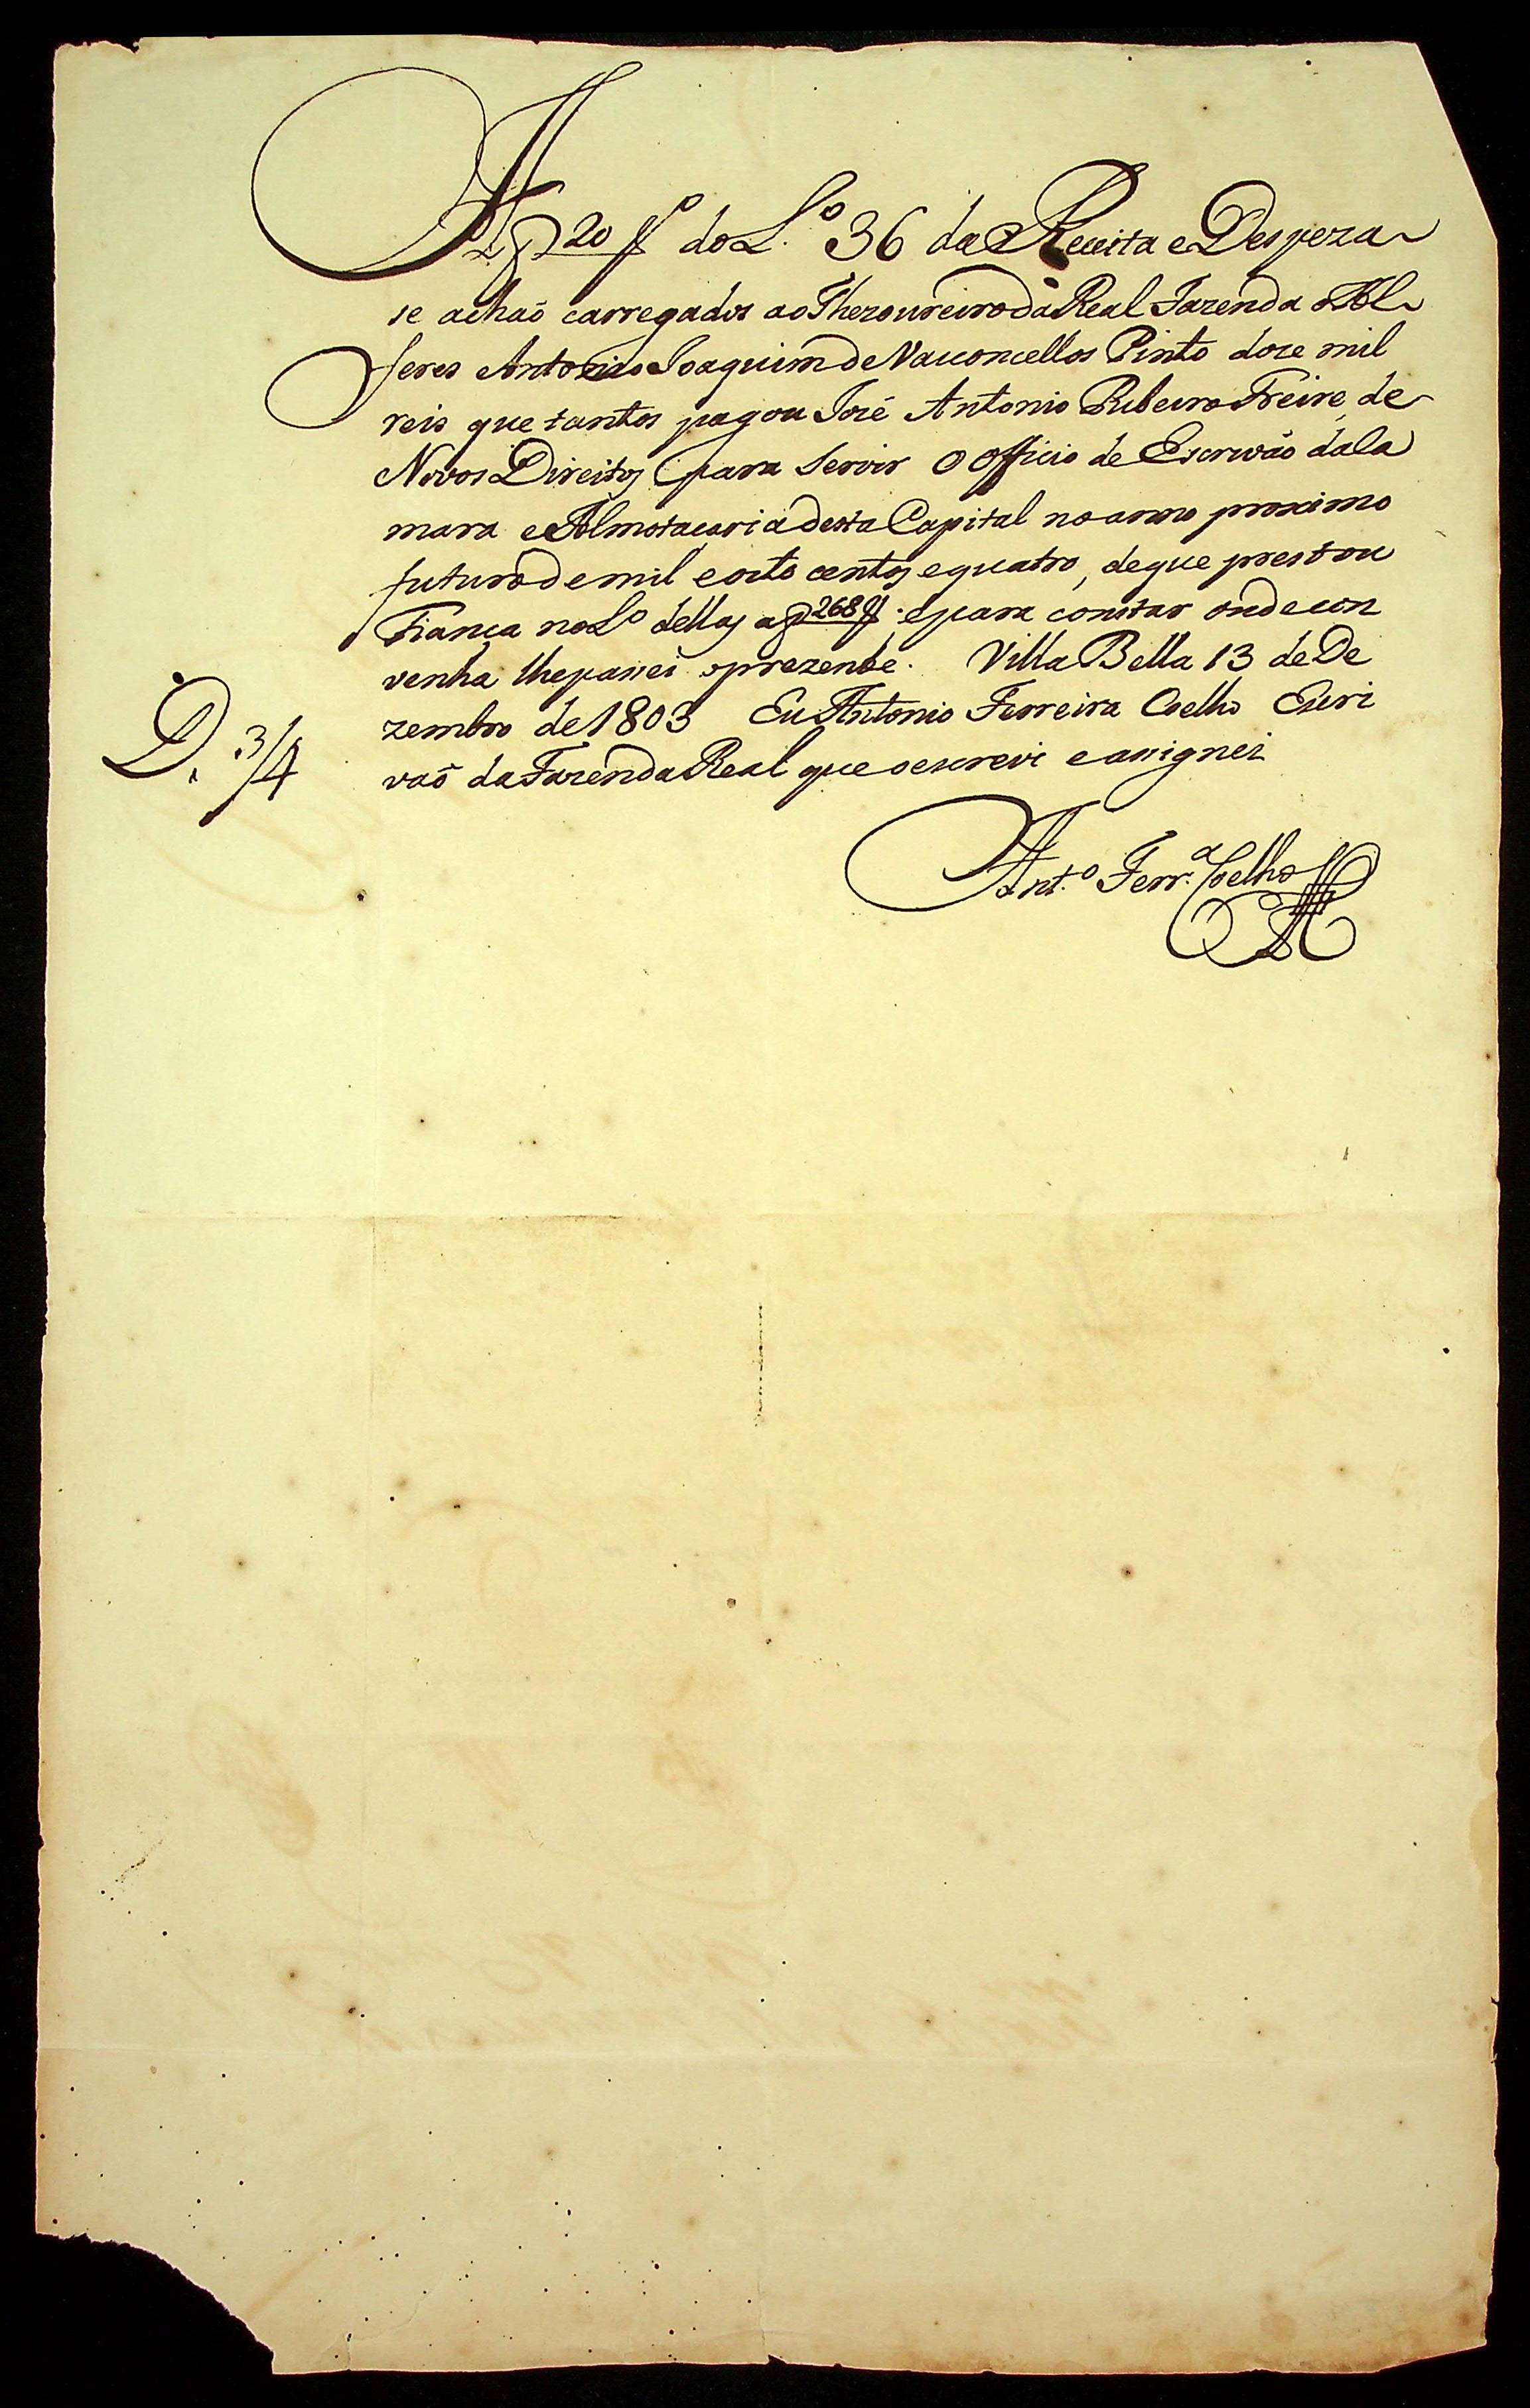 A f 20 do L.º 36 da Receita e Despeza
se achaõ carregados ao Thezoureiro da Real Fazenda o Al
feres Antonio Joaquim de Vasconcellos Pinto doze mil
reis que tantos pagou José Antonio Ribeiro Freire, de
Novos Direitos para Servir o Officio de Escrivão da Ca
mara e Almotaçaria desta Capital no anno proximo
futuro de mil e oito centos e quatro, de que prestou
Fiança no Lº dellas a f 268 e para constar onde con
venha lhe passei o prezente. Villa Bella 13 de De
zembro de 1803 Eu Antonio Ferreira Coelho Escri
vaõ da Fazenda Real que o escrevi e assignei
D. 3/4
Ant.º Ferr.ª Coelho